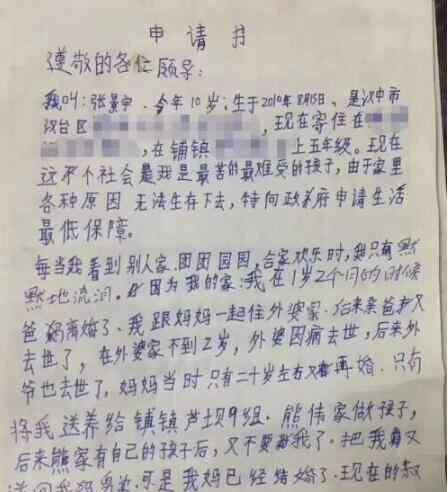 申请书
尊敬的各位领导:
我叫:张景中、今年10岁;生于2010年8月15日、是汉中市
汉台区,现在寄住在
,在铺镇上五年级。现在
这个社会是我是最苦的最难受的孩子,由于家里
各种原因无法生存下去,特向政府申请生活
最低保障。
每当我看到别人家.团团园园,合家欢乐时,我只有默
默地流泪。因为我的家:我在1岁2个月的时候
爸妈离婚了、我跟妈妈一起住外婆家.后来亲爸又
去世了,在外婆家不到2岁,外婆因病去世,后来外
爷也去世了,妈妈当时只有二十岁左右又再婚.只有
将我送养给铺镇芦坝9组.熊伟家做孩子,
后来熊家有自己的孩子后,又不要我了.把我又
送回我妈身边.可是我妈已经结婚了.现在的叔